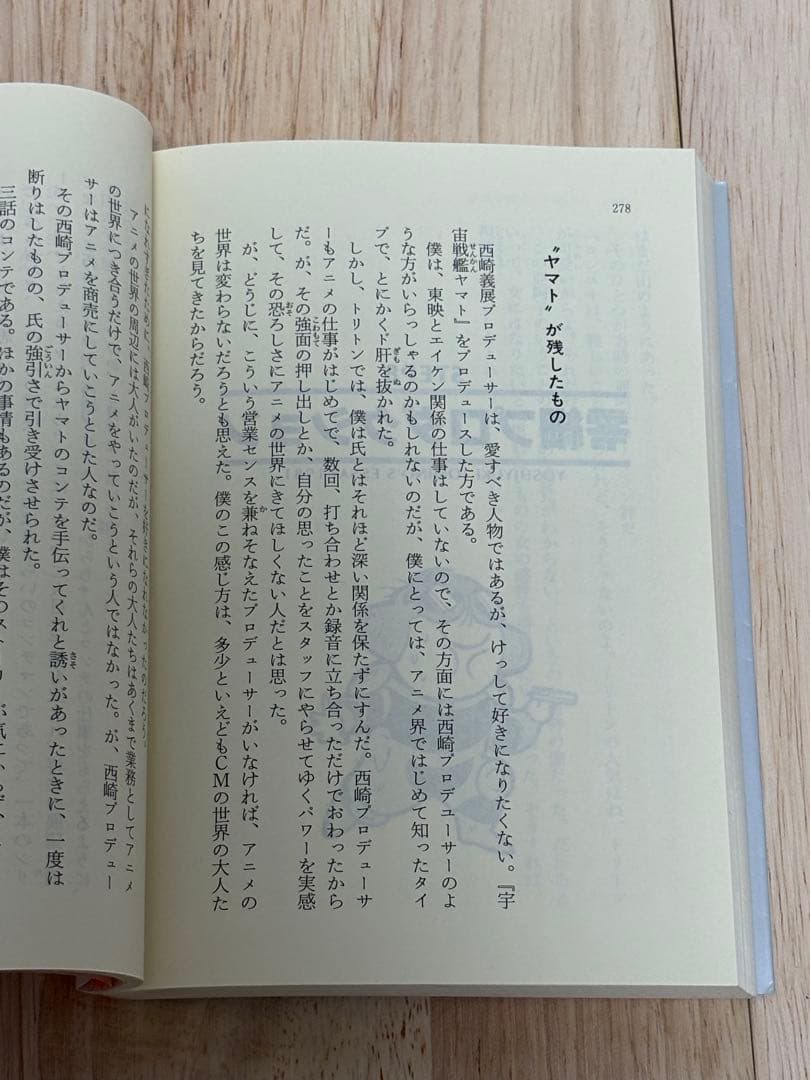 278
〝ヤマト〟が残したもの
西崎義展プロデューサーは、愛すべき人物ではあるが、けっして好きになりたくない。『宇
宙戦艦ヤマト』をプロデュースした方である。
僕は、東映とエイケン関係の仕事はしていないので、その方面には西崎プロデューサーのよ
うな方がいらっしゃるのかもしれないのだが、僕にとっては、アニメ界ではじめて知ったタイ
プで、とにかくド肝を抜かれた。
しかし、トリトンでは、僕は氏とはそれほど深い関係を保たずにすんだ。西崎プロデューサ
ーもアニメの仕事がはじめてで、数回、打ち合わせとか録音に立ち合っただけでおわったから
だ。が、その強面の押し出しとか、自分の思ったことをスタッフにやらせてゆくパワーを実感
して、その恐ろしさにアニメの世界にきてほしくない人だとは思った。
が、どうじに、こういう営業センスを兼ねそなえたプロデューサーがいなければ、アニメの
世界は変わらないだろうとも思えた。僕のこの感じ方は、多少といえどもCMの世界の大人た
ちを見てきたからだろう。
になれすぎたために、西崎プロデューサーを好きになれなかったのだろう。
アニメの世界の周辺には大人がいたのだが、それらの大人たちはあくまで業務としてアニメ
の世界につき合うだけで、アニメをやっていこうという人ではなかった。が、西崎プロデュー
サーはアニメを商売にしていこうとした人なのだ。
その西崎プロデューサーからヤマトのコンテを手伝ってくれと誘いがあったときに、一度は
断りはしたものの、氏の強引さで引き受けさせられた。
三話のコンテである。ほかの事情もあるのだが、僕はそのス